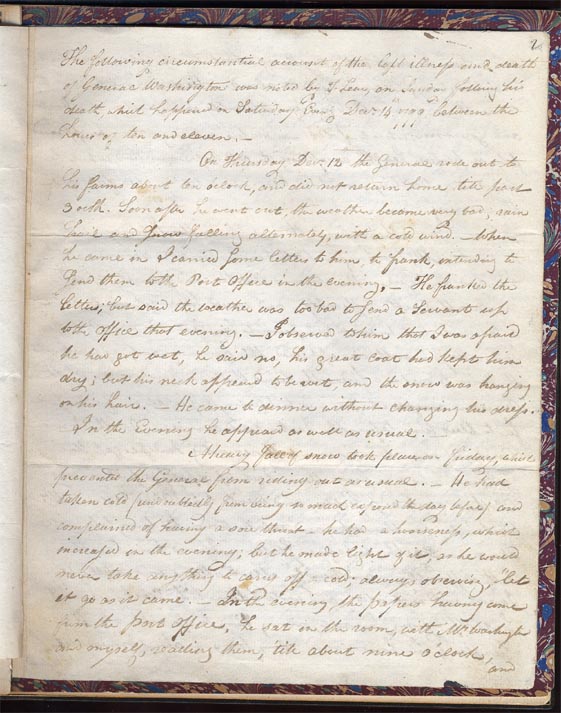 2
The following circumstantial account of the last illness and death
of General Washington was noted by T. Lear, on Sunday follng his
death, which happened on Saturday Eveng Decr 14th 1799 between the
hours of ten and eleven. —
On Thursday Decr 12 the General rode out to
his farms about ten o'clock, and did not return home till past
3 oclk. Soon after he went out, the weather became very bad, rain
hail and Snow falling alternately, with a cold wind. — When
he came in I carried some letters to him to frank, intending to
Send them to the Post Office in the evening. — He franked the
letters; but said the weather was too bad to send a Servant up
to the office that evening. — I observed to him that I was afraid
he had got wet, he said no, his great coat had kept him
dry; but his neck appeared to be wet, and the snow was hanging
on his hair. — He came to dinner without changing his dress.
In the Evening he appeared as well as usual. —
A heavy fall of snow took place on friday, which
prevented the General from riding out as usual. — He had
taken cold (undoubtedly from being so much exposed the day before) and
complained of having a sore throat — he had a hoarseness, which
increased in the evening; but he made light of it, as he would
never take any thing to carry off a cold, always observing, "let
it go as it came. — In the evening, the papers having come
from the Post Office, he sat in the room, with Mrs Washington
and myself, reading them, till about nine o'clock,
and